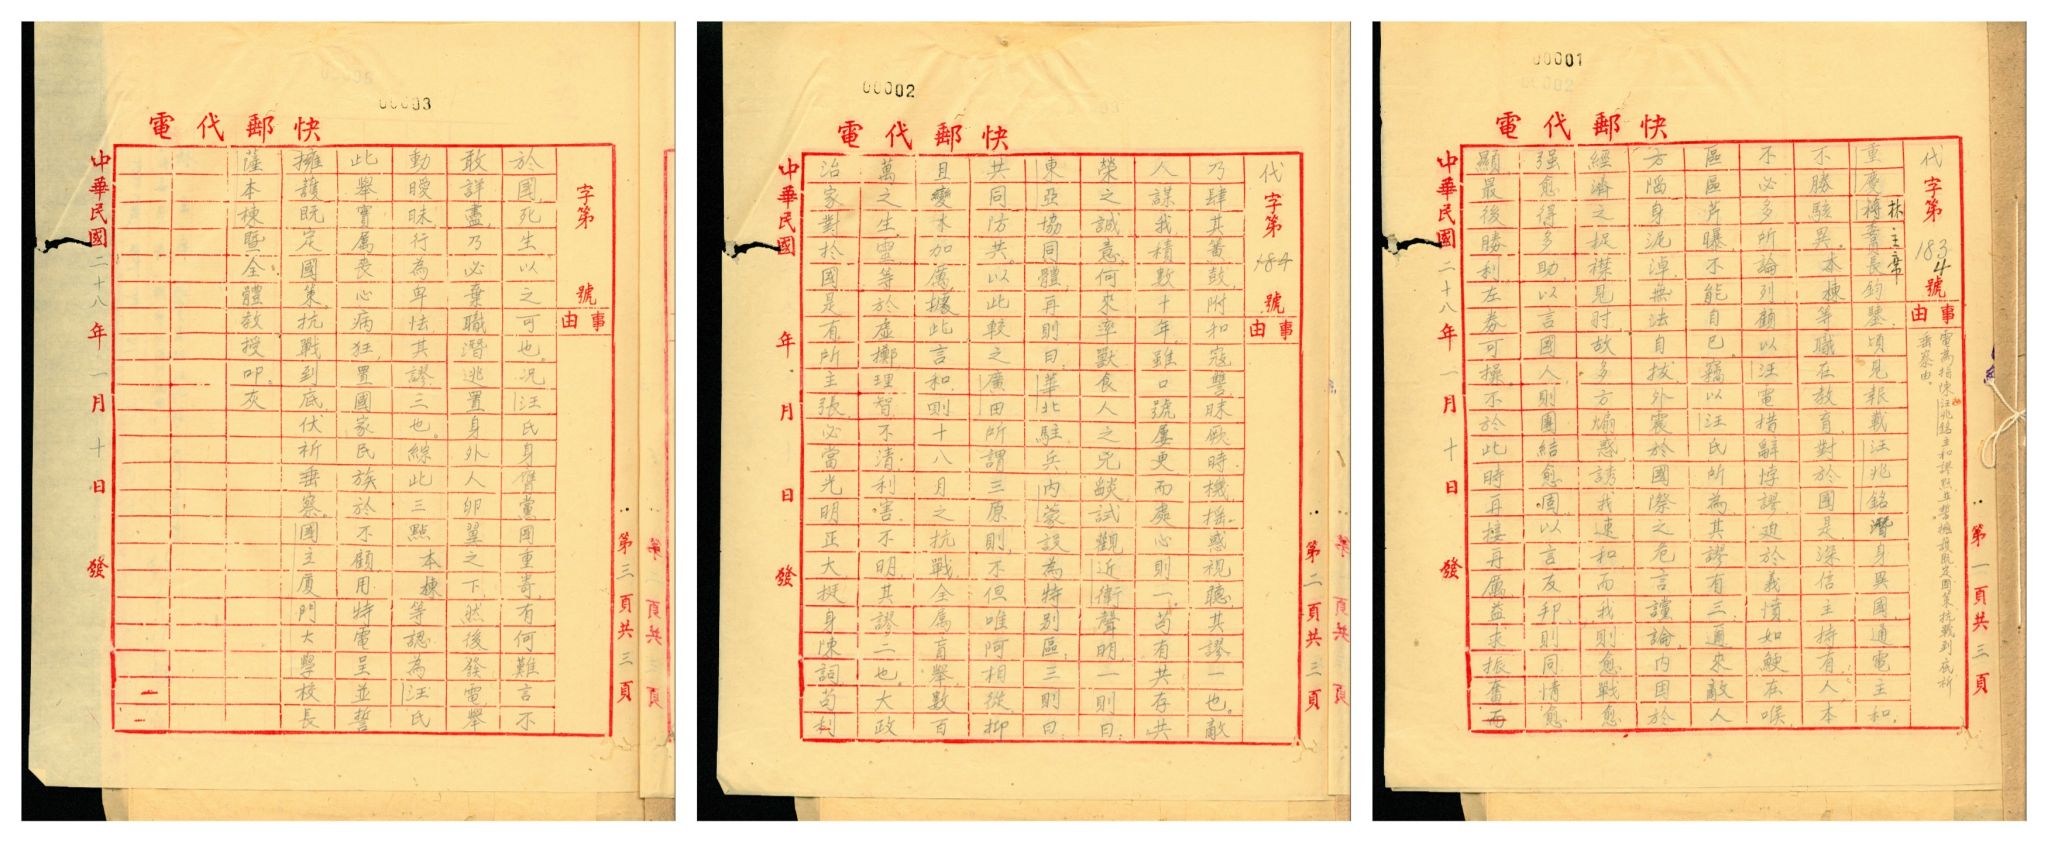 00001
快郵代電
代字第1834號
事由
電為指陳汪兆銘主和謬點並誓擁護既定國策抗戰到底祈
垂察由。
林主席
重慶蔣委員長鈞鑒。頃見報載汪兆銘潛身異國,通電主和,
不勝駭異。本棟等職在教育,對於國是,深信主持有人,本
不必多所論列,顧以汪電措辭悖謬,迫於義憤,如鯁在喉,
區區芹曝,不能自已。竊以汪氏所為,其謬有三,邇來敵人
方陷身泥淖,無法自拔,外震於國際之危言讜論,内困於
經濟之捉襟見肘,故多方煽惑,誘我速和,而我則愈戰愈
强,愈得多助,以言國人,則團結愈固,以言友邦,則同情愈
顯,最後勝利,左券可操,不於此時再接再厲,益求振奮,而
中華民國二十八年一月十日發
第一頁共三頁
00002
快郵代電
代字第184號
事由
乃肆其簧鼓,附和寇讐,昧厥時機,摇惑視聽,其謬一也。敵
人謀我,積數十年,雖口號屢更,而處心則一。苟有共存共
榮之誠意,何來率獸食人之兇燄,試觀近衛聲明,一則曰,
東亞協同體,再則曰,華北駐兵,内蒙設為特别區,三則曰,
共同防共。以此較之廣田所謂三原則,不但唯阿相從,抑
且變本加厲,據此言和,則十八月之抗戰,全属盲舉,數百
萬之生靈,等於虚擲,理智不清,利害不明,其謬二也。大政
治家對於國是,有所主張,必當光明正大,挺身陳詞,苟利
中華民國 年 月 日發
第二頁共三頁
00003
快郵代電
字第 號
事由
於國,死生以之可也。况汪氏身膺黨國重寄,有何難言,不
敢詳盡,乃必棄職潛逃,置身外人卵翼之下,然後發電,舉
動曖昧,行為卑怯,其謬三也。綜此三點,本棟等認為汪氏
此舉,實属喪心病狂,置國家民族於不顧,用特電呈,並誓
擁護既定國策。抗戰到底,伏祈垂察。國立厦門大學校長
薩本棟暨全體教授叩。灰
中華民國二十八年一月十日發
第三頁共三頁